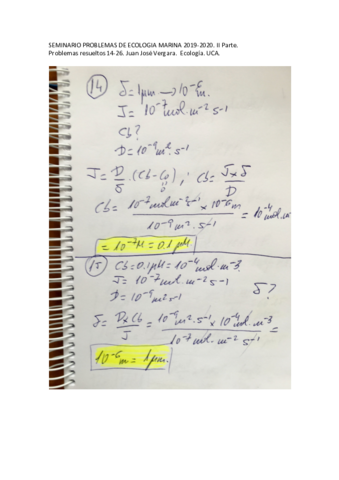 SEMINARIO PROBLEMAS DE ECOLOGIA MARINA 2019-2020. II Parte.
Problemas resueltos 14-26. Juan José Vergara. Ecología. UCA.
14 δ=1μm → 10⁻⁶m.
J= 10⁻⁷mol·m⁻²s⁻¹
Cb?
D=10⁻⁹m²·s⁻¹
J= D/δ ·(Cb-C0) ; Cb= J×δ/D
0
Cb= 10⁻⁷mol·m⁻²s⁻¹ × 10⁻⁶m / 10⁻⁹m²·s⁻¹ = 10⁻⁴mol·m
= 10⁻⁷M = 0.1μM
15 Cb=0.1μM=10⁻⁴mol·m⁻³
J= 10⁻⁷mol·m⁻²s⁻¹ δ?
D= 10⁻⁹m²s⁻¹
δ= D×Cb/J = 10⁻⁹m²·s⁻¹ × 10⁻⁴mol·m⁻³ / 10⁻⁷mol·m⁻²·s⁻¹ =
10⁻⁶m = 1μm.